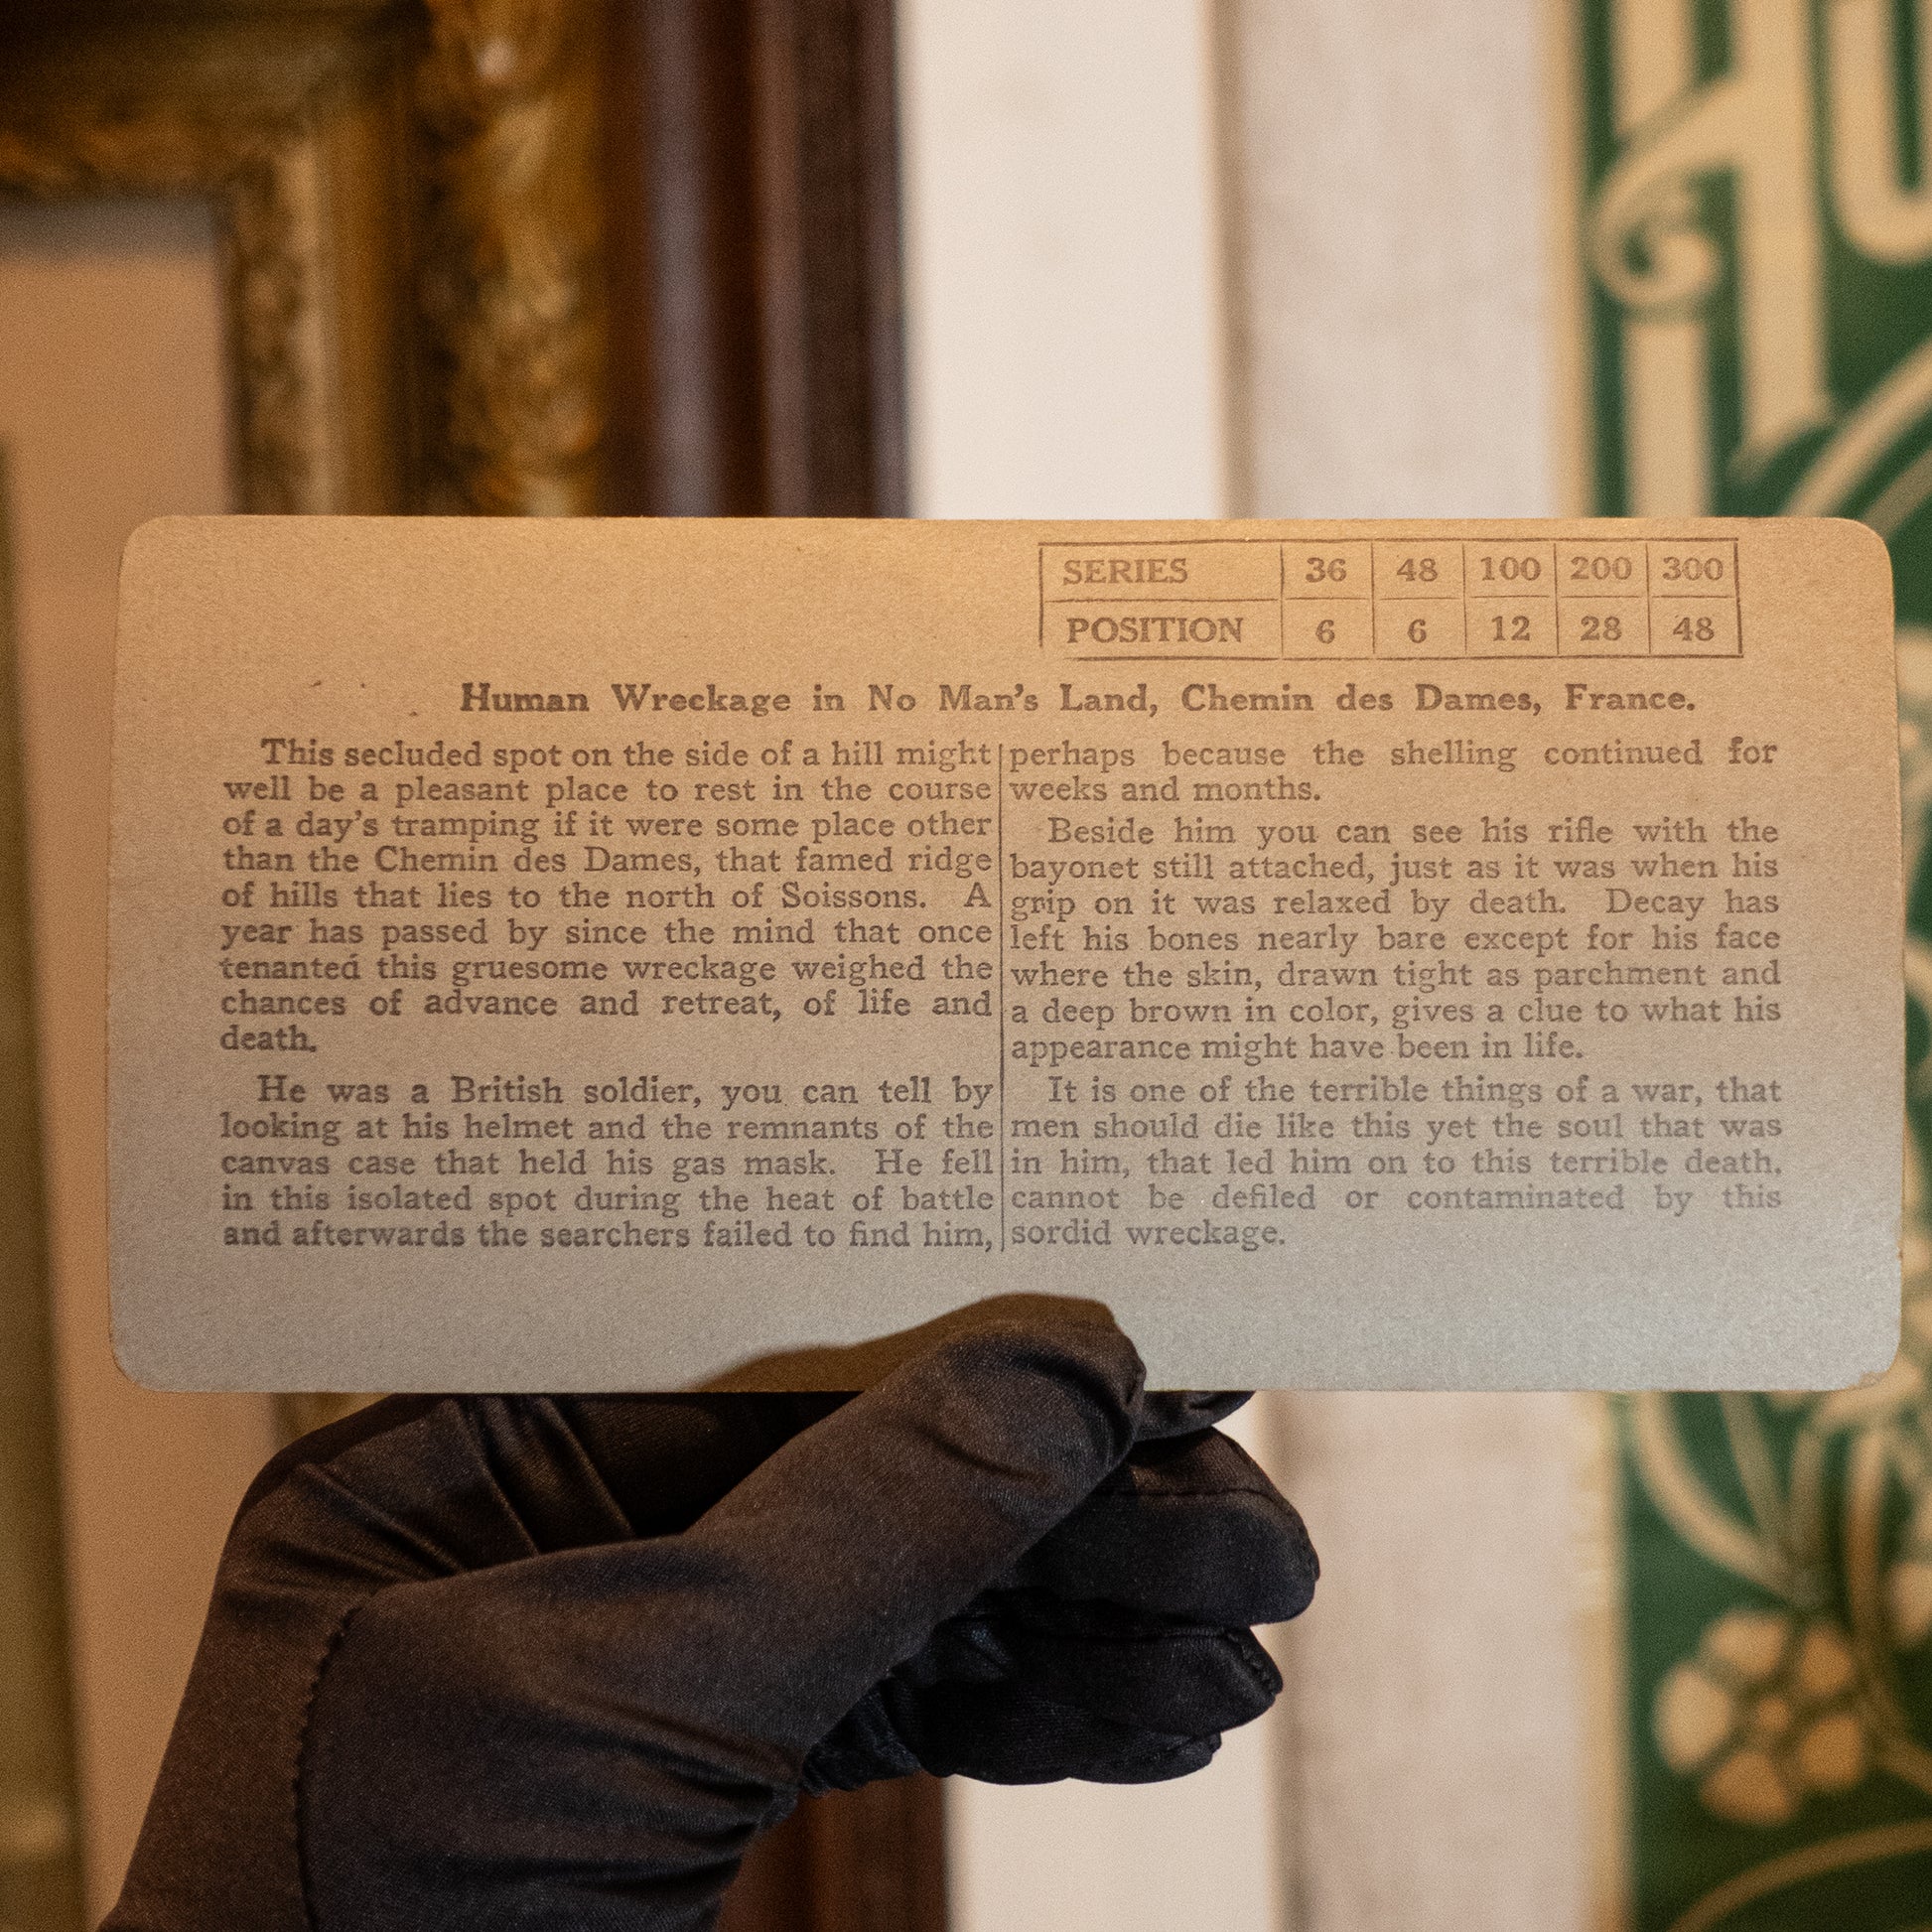 SERIES 36 48 100 200 300
POSITION 6 6 12 28 48
Human Wreckage in No Man's Land, Chemin des Dames, France.
This secluded spot on the side of a hill might
well be a pleasant place to rest in the course
of a day's tramping if it were some place other
than the Chemin des Dames, that famed ridge
of hills that lies to the north of Soissons. A
year has passed by since the mind that once
tenanted this gruesome wreckage weighed the
chances of advance and retreat, of life and
death.
He was a British soldier, you can tell by
looking at his helmet and the remnants of the
canvas case that held his gas mask. He fell
in this isolated spot during the heat of battle
and afterwards the searchers failed to find him,
perhaps because the shelling continued for
weeks and months.
Beside him you can see his rifle with the
bayonet still attached, just as it was when his
grip on it was relaxed by death. Decay has
left his bones nearly bare except for his face
where the skin, drawn tight as parchment and
a deep brown in color, gives a clue to what his
appearance might have been in life.
It is one of the terrible things of a war, that
men should die like this yet the soul that was
in him, that led him on to this terrible death,
cannot be defiled or contaminated by this
sordid wreckage.